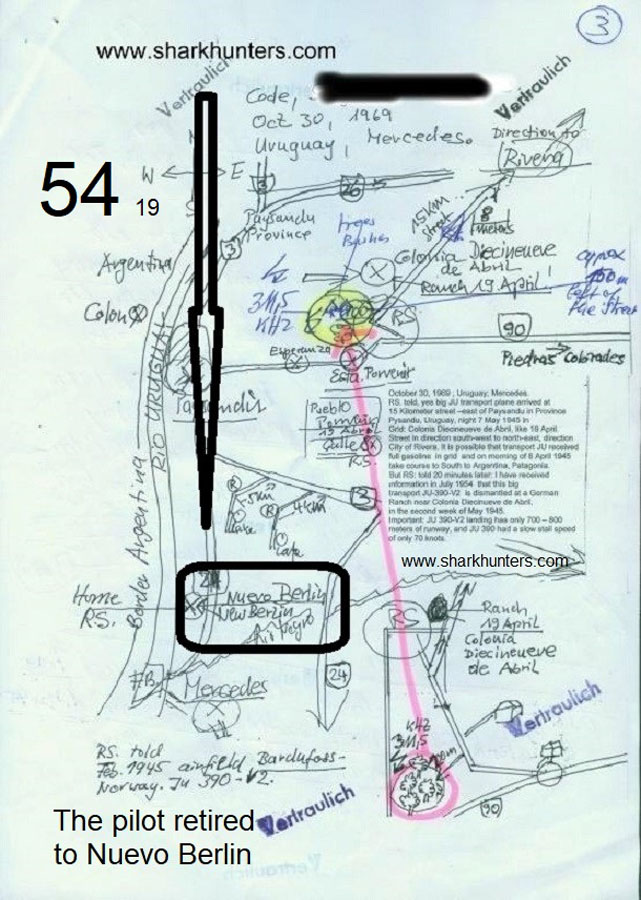 3
www.sharkhunters.com
Vertraulich
Vertraulich
Code,
Oct 30, 1969
Uruguay, Mercedes.
Direction to
Rivera
W E
54 19
3
26
Paysandu
Province
trees
Bushes
15 KM
street
3
Argentina
Colonia Diecineueve
de Abril
Ranch 19 April
appox
left of
the street
Colon
3M,5
KHZ
RS
90
Esperanza
Esta. Porvenir
Piedras Coloradas
RIO URUGUAY
Paysandu
Pueblo
RS.
October 30, 1969 , Uruguay, Mercedes.
RS. told, yes big JU transport plane arrived at
15 Kilometer street –east of Paysandu in Province
Pysandu, Uruguay, night 7 May 1945 in
Grid: Colonia Diecineueve de Abril, like 19 April.
Street in direction south-west to north-east, direction
City of Rivera. It is possible that transport JU received
full gasoline in grid and on morning of 8 April 1945
take course to South to Argentina, Patagonia.
But RS: told 20 minutes later: I have received
information in July 1954 that this big
transport JU-390-V2 is dismantled at a German
Ranch near Colonia Diecineueve de Abril,
in the second week of May 1945.
Important: JU 390-V2 landing has only 700 – 800
meters of runway, and JU 390 had a slow stall speed
of only 70 knots.
3
4km
Lake
Lake
www.sharkhunters.com
Border Argentina
24
Home
RS.
Nuevo Berlin
New Berlin
Rio Negro
RS
Ranch
19 April
Colonia
Diecineueve
de Abril
24
Mercedes
Vertraulich
KHZ
3M,5
RS. told
Feb. 1945 airfield Bardufoss-
Norway. Ju 390-V2.
90
The pilot retired
to Nuevo Berlin
Vertraulich